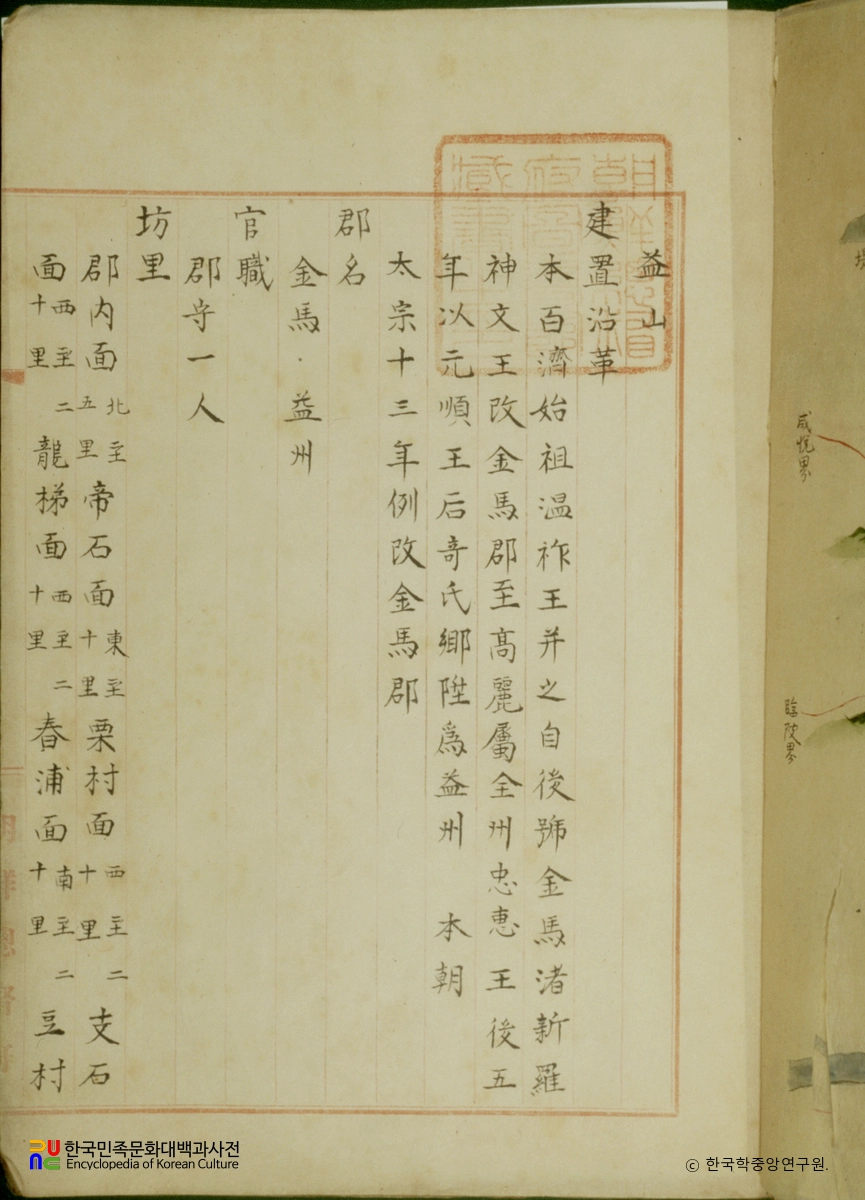 益山
建置沿革
本百濟始祖温祚王并之自後號金馬渚新羅
神文王改金馬郡至高麗屬全州忠惠王後五
年以元順王后奇氏鄉陞爲益州　本朝
太宗十三年例改金馬郡
郡名
金馬·益州
官職
郡守一人
坊里
郡内面北至五里帝石面東至十里栗村面西至二十里支石
面西至二十里龍梯面西至二十里春浦面南至二十里豆村
咸悅界
臨陂界
한국민족문화대백과사전
Encyclopedia of Korean Culture
ⓒ 한국학중앙연구원.